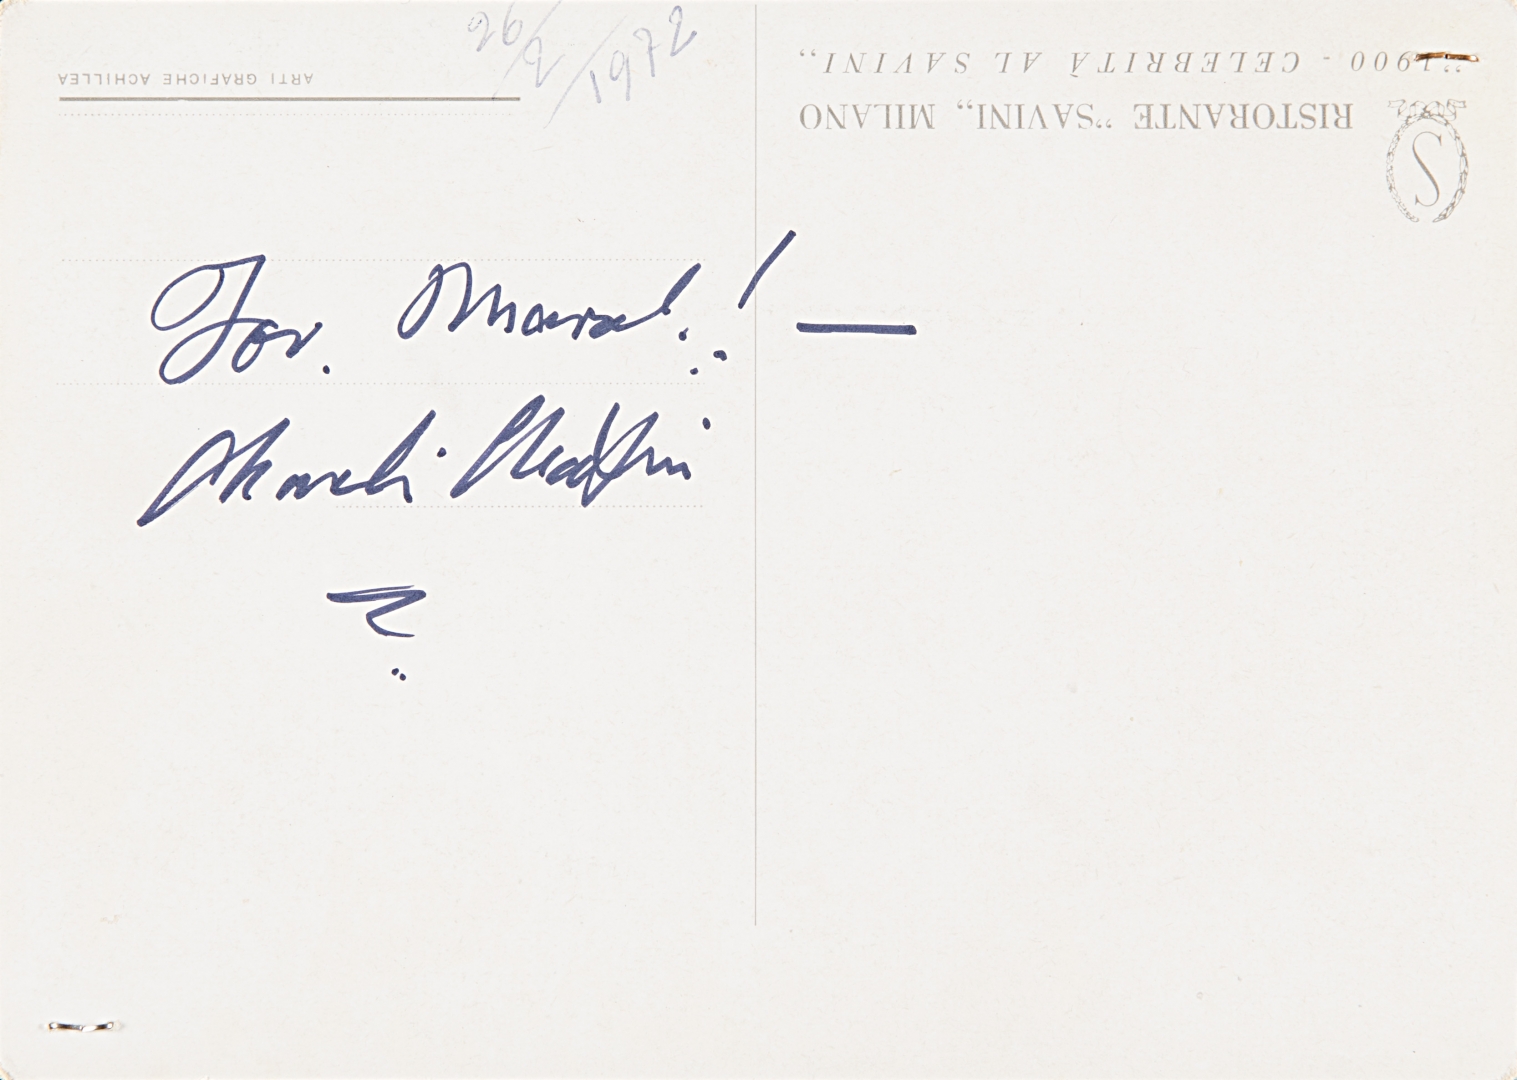 26/2/1972
For. Marcel.!
Charlie Chaplin
"1900 - CELEBRITÀ AL SAVINI"
RISTORANTE "SAVINI" MILANO
S
ARTI GRAFICHE ACHILLEA